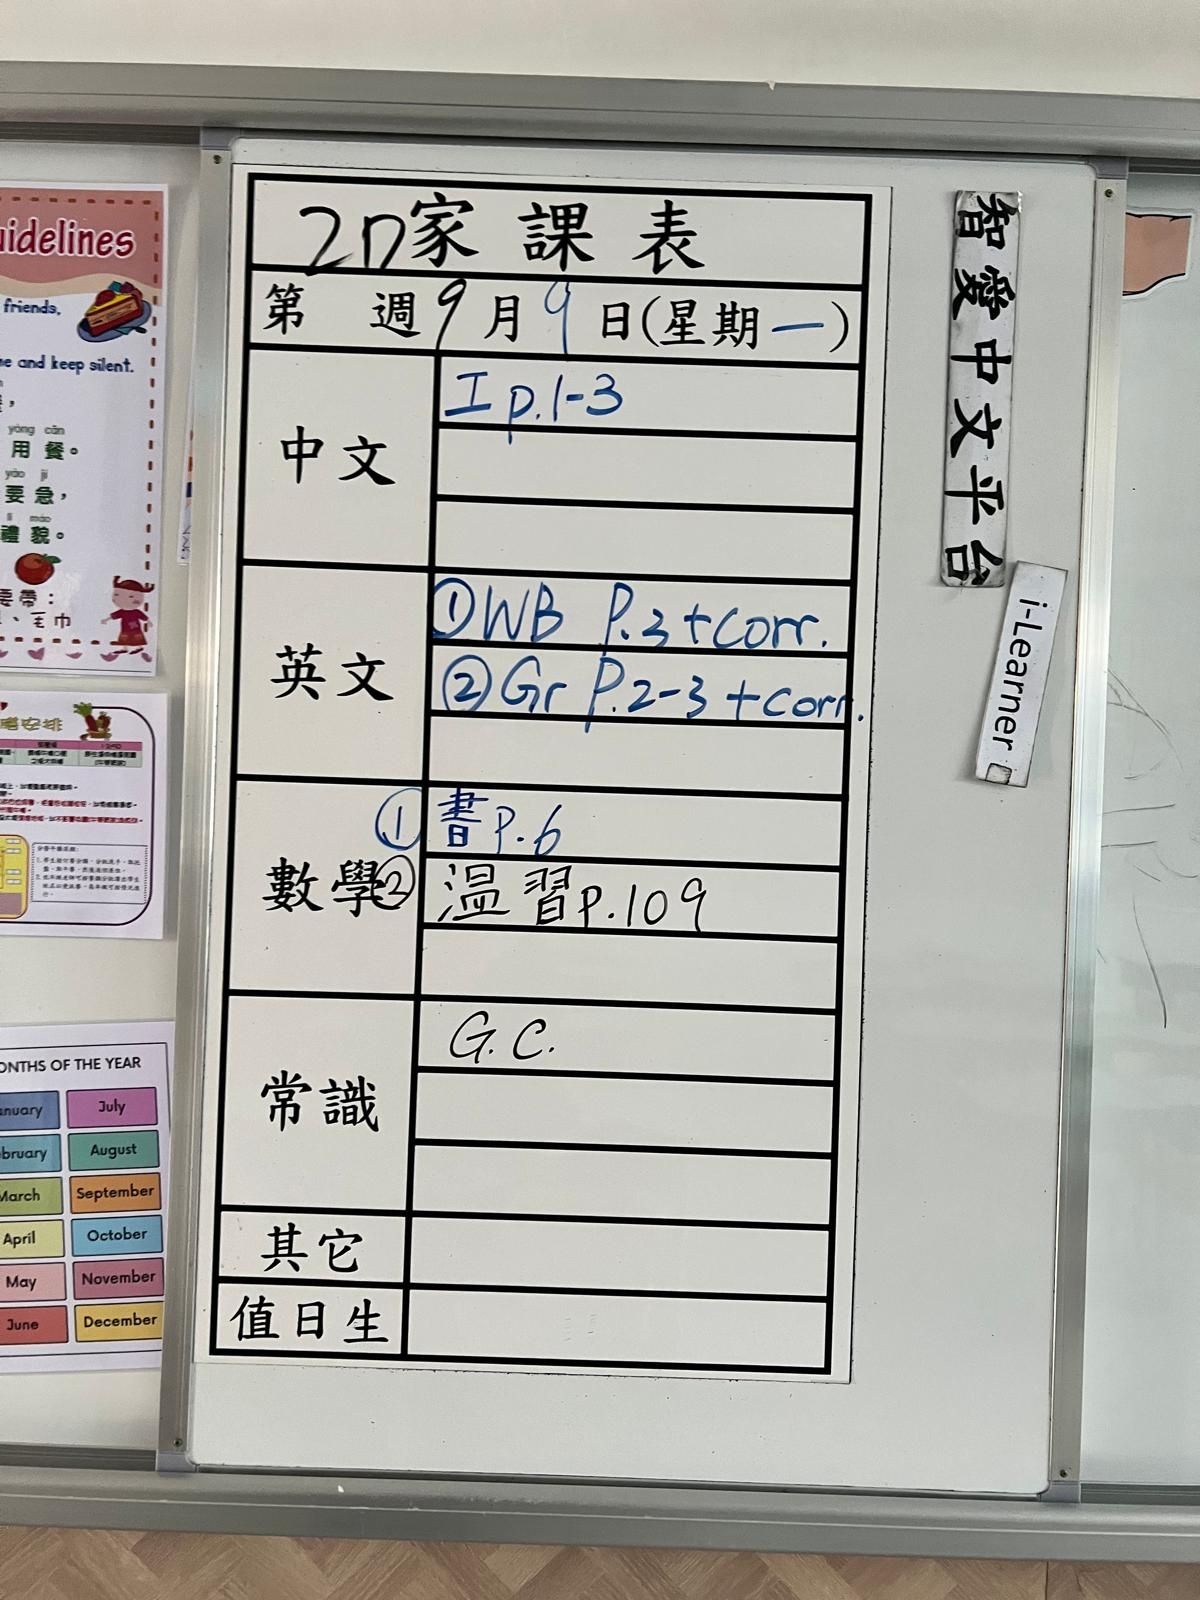 2D家課表
第 週9月9日(星期一)
中文
工 p.1-3
英文
①WB P.3+corr.
②Gr P.2-3+corr.
數學
①書p.6
②溫習p.109
常識
G.C.
其它
值日生
智愛中文平台
i-Learner
uidelines
friends,
me and keep silent.
yòng cān
用餐。
yào jí
要急，
lǐ mào
禮貌。
要帶：
、毛巾
ONTHS OF THE YEAR
anuary July
ebruary August
March September
April October
May November
June December